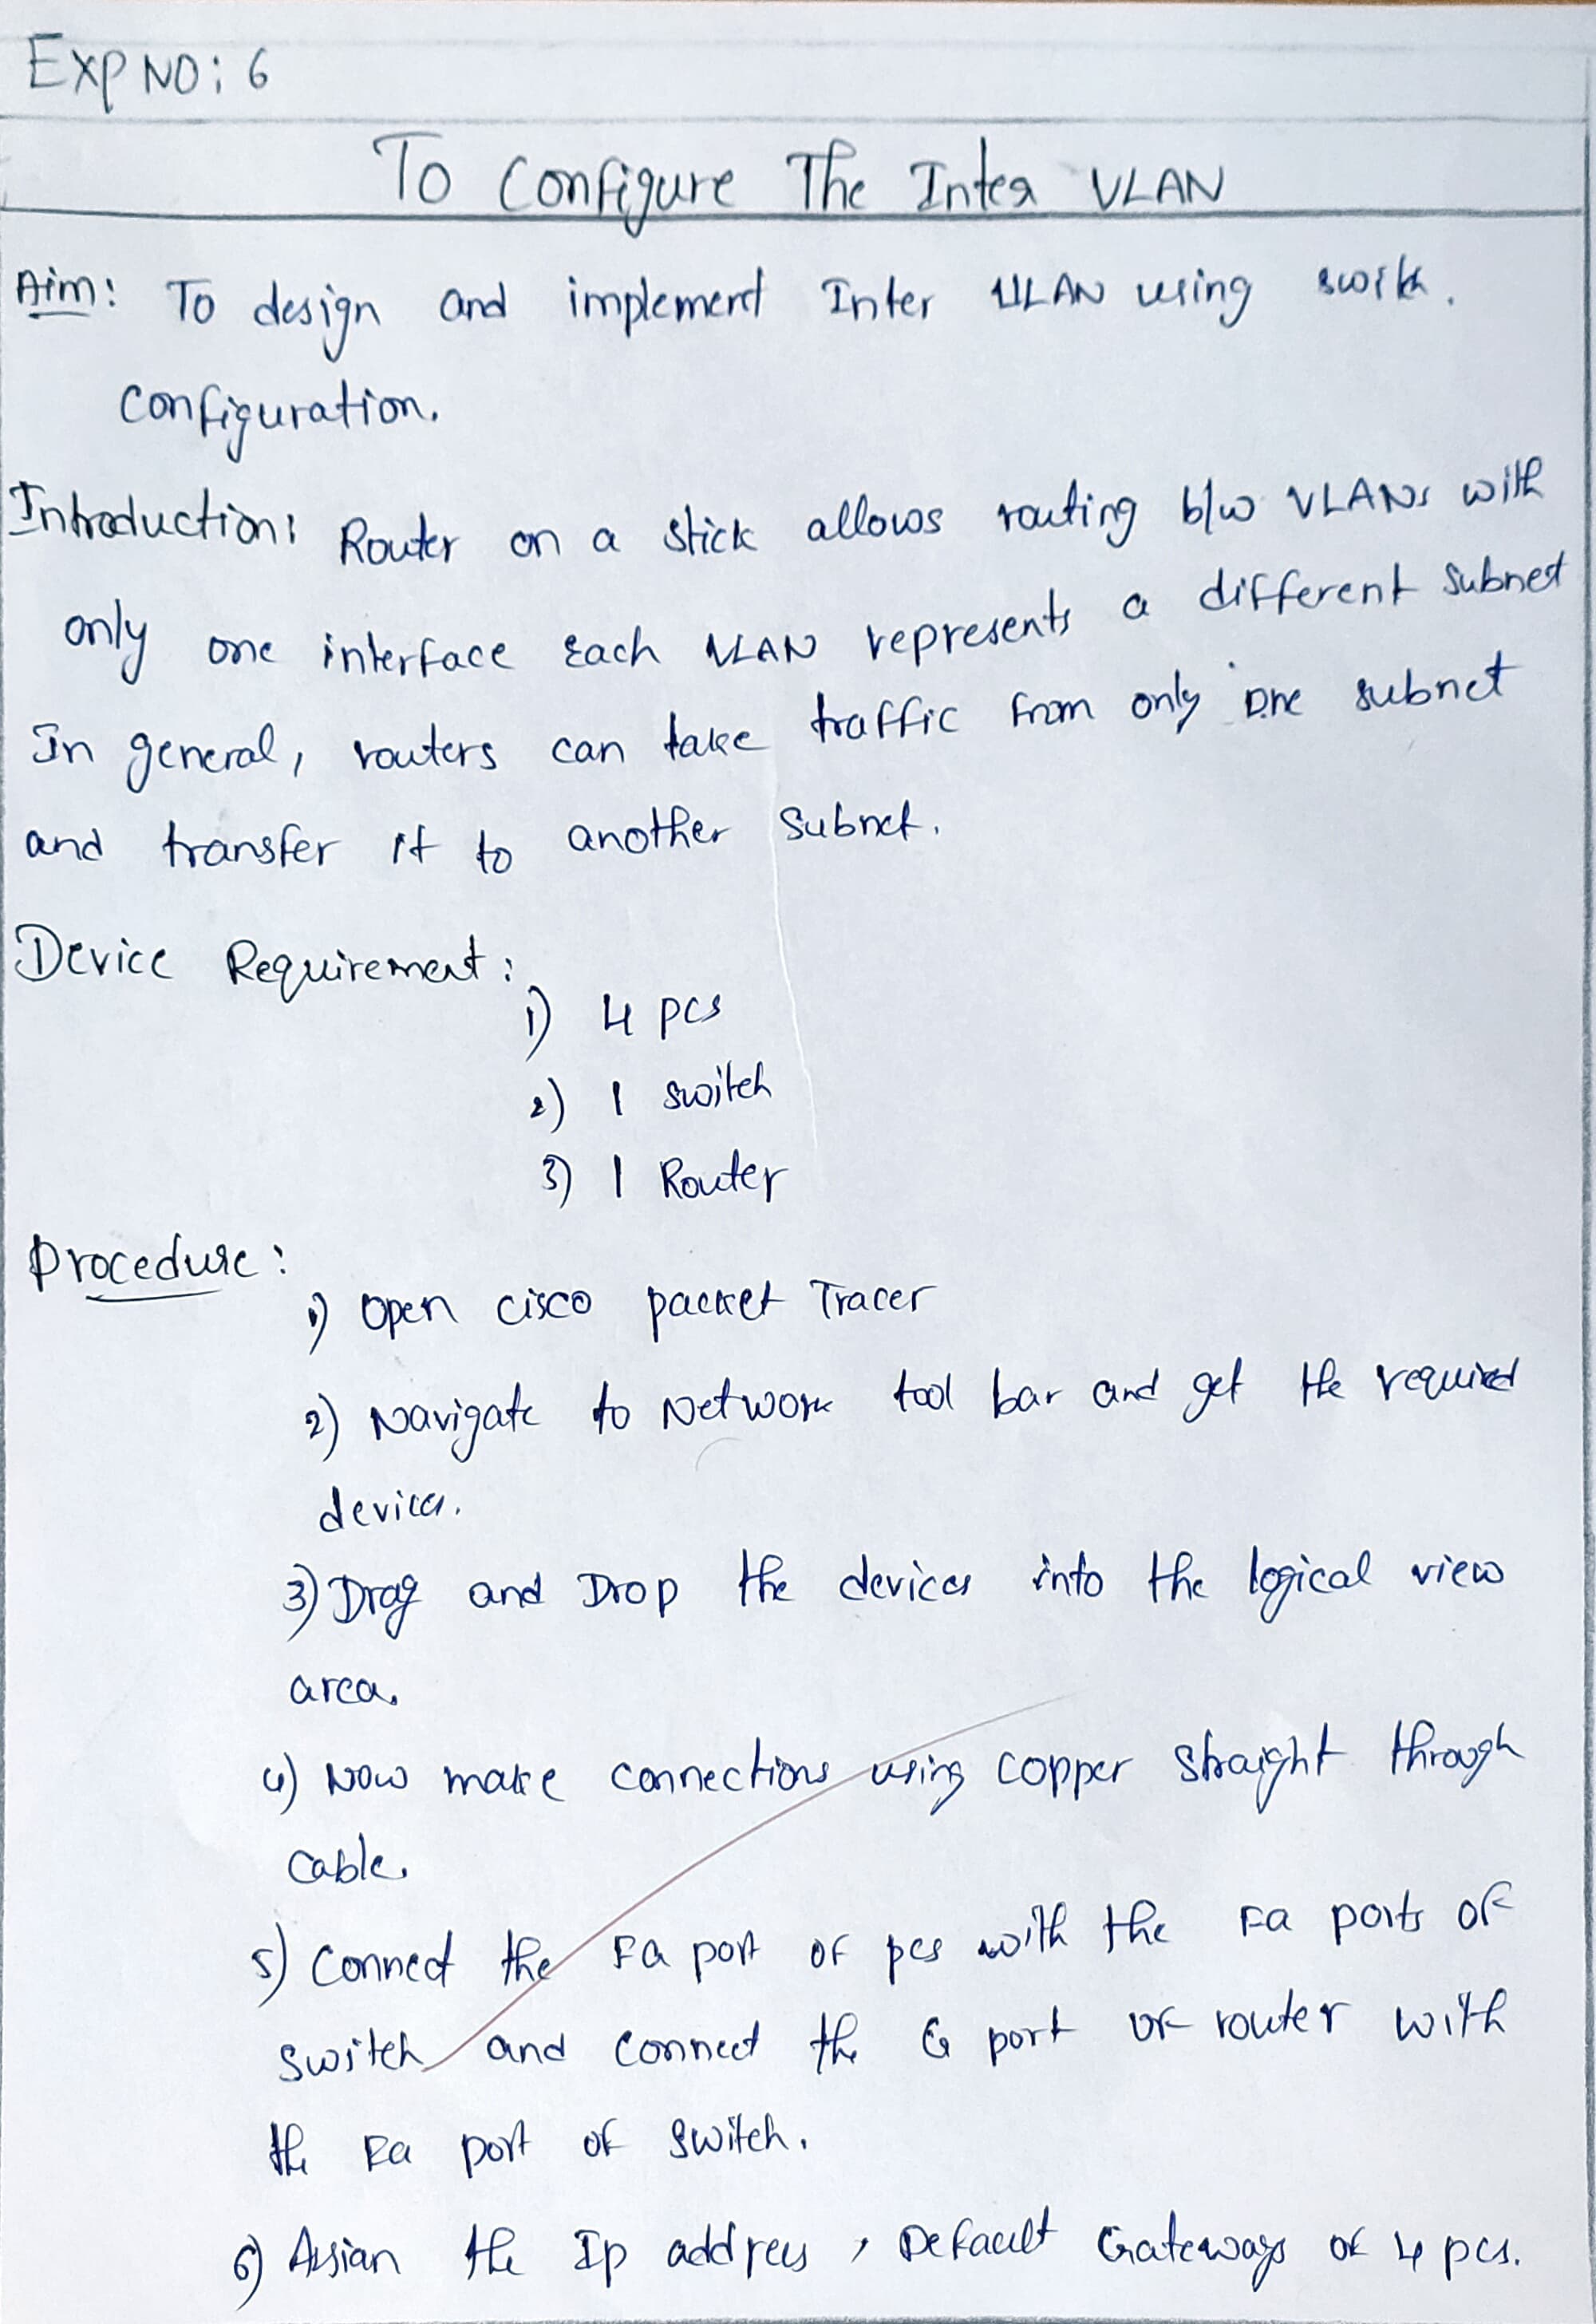 EXP NO: 6
To Configure The Inter VLAN
Aim: To design and implement Inter VLAN using
configuration.
Introduction: Router on a stick allows routing b/w VLANs with
only one interface Each VLAN represents a different subnet
In general, routers can take traffic from only one subnet
and transfer it to another subnet.
Device Requirement:
1) 4 pcs
2) 1 switch
3) 1 Router
Procedure:
1) Open cisco packet Tracer
2) Navigate to Network tool bar and get the required
devices.
3) Drag and Drop the devices into the logical view
area.
4) Now make connections using copper straight through
cable.
5) Connect the Fa port of pcs with the Fa ports of
switch and connect the G port of router with
the Fa port of switch.
6) Assian the Ip address, Default Gateways of 4 pcs.